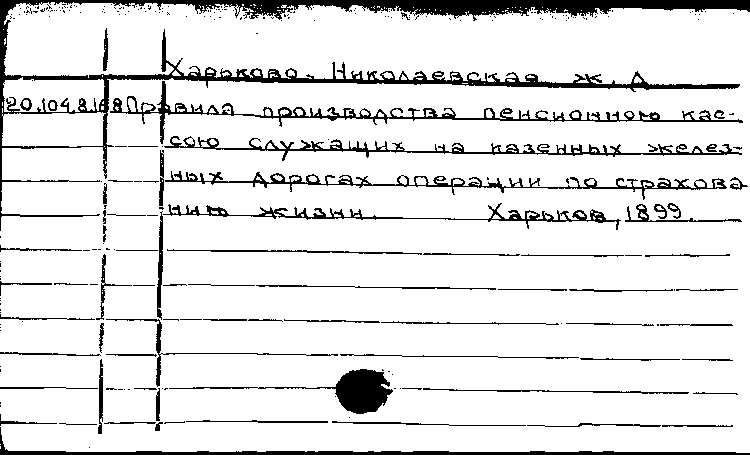 Харьково-Николаевская ж. д
20.104.8.168 Правила производства пенсионною кас-
сою служащих на казенных желез-
ных дорогах операции по страхова
нию жизни. Харьков, 1899.